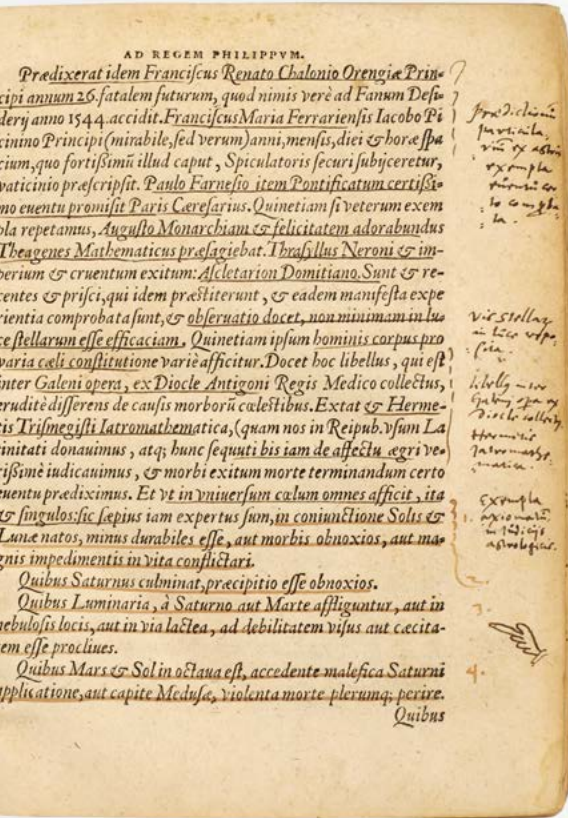 AD REGEM PHILIPPVM.
Prædixerat idem Franciſcus Renato Chalonio Orengiæ Prin-
cipi annum 26. fatalem futurum, quod nimis verè ad Fanum Deſi-
derij anno 1544. accidit. Franciſcus Maria Ferrarienſis Iacobo Pi
cinino Principi (mirabile, ſed verum) anni, menſis, diei & horæ ſpa
cium, quo fortißimũ illud caput, Spiculatoris ſecuri ſubijceretur,
vaticinio præſcripſit. Paulo Farneſio item Pontificatum certißi-
mo euentu promiſit Paris Cæreſarius. Quinetiam ſi veterum exem
pla repetamus, Auguſto Monarchiam & felicitatem adorabundus
Theagenes Mathematicus præſagiebat. Thraſyllus Neroni & im-
perium & cruentum exitum: Aſcletarion Domitiano. Sunt & re-
centes & priſci, qui idem præſtiterunt, & eadem manifeſta expe
rientia comprobata ſunt, & obſeruatio docet, non minimam in lu-
ce ſtellarum eſſe efficaciam. Quinetiam ipſum hominis corpus pro
varia cæli conſtitutione variè afficitur. Docet hoc libellus, qui eſt
inter Galeni opera, ex Diocle Antigoni Regis Medico collectus,
eruditè diſſerens de cauſis morborũ cœleſtibus. Extat & Herme-
tis Triſmegiſti Iatromathematica, (quam nos in Reipub. vſum La
tinitati donauimus, atq; hunc ſequuti bis iam de affectu ægri ve-
rißimè iudicauimus, & morbi exitum morte terminandum certo
euentu prædiximus. Et vt in vniuerſum cælum omnes afficit, ita
& ſingulos: ſic ſæpius iam expertus ſum, in coniunctione Solis &
Lunæ natos, minus durabiles eſſe, aut morbis obnoxios, aut ma-
gnis impedimentis in vita conflictari.
Quibus Saturnus culminat, præcipitio eſſe obnoxios.
Quibus Luminaria, à Saturno aut Marte affliguntur, aut in
nebuloſis locis, aut in via lactea, ad debilitatem viſus aut cæcita-
tem eſſe procliues.
Quibus Mars & Sol in octaua eſt, accedente malefica Saturni
applicatione, aut capite Meduſæ, violenta morte plerumq; perire.
Quibus
exempla
Vis Stellaꝝ
in luce
libellꝰ inter
Galeni opera ex
Diocle collectꝰ
Hermetis
Iatromathe-
matica.
Exempla
axiomatũ
in iudicijs
astrologicis.
1.
2.
3.
4.